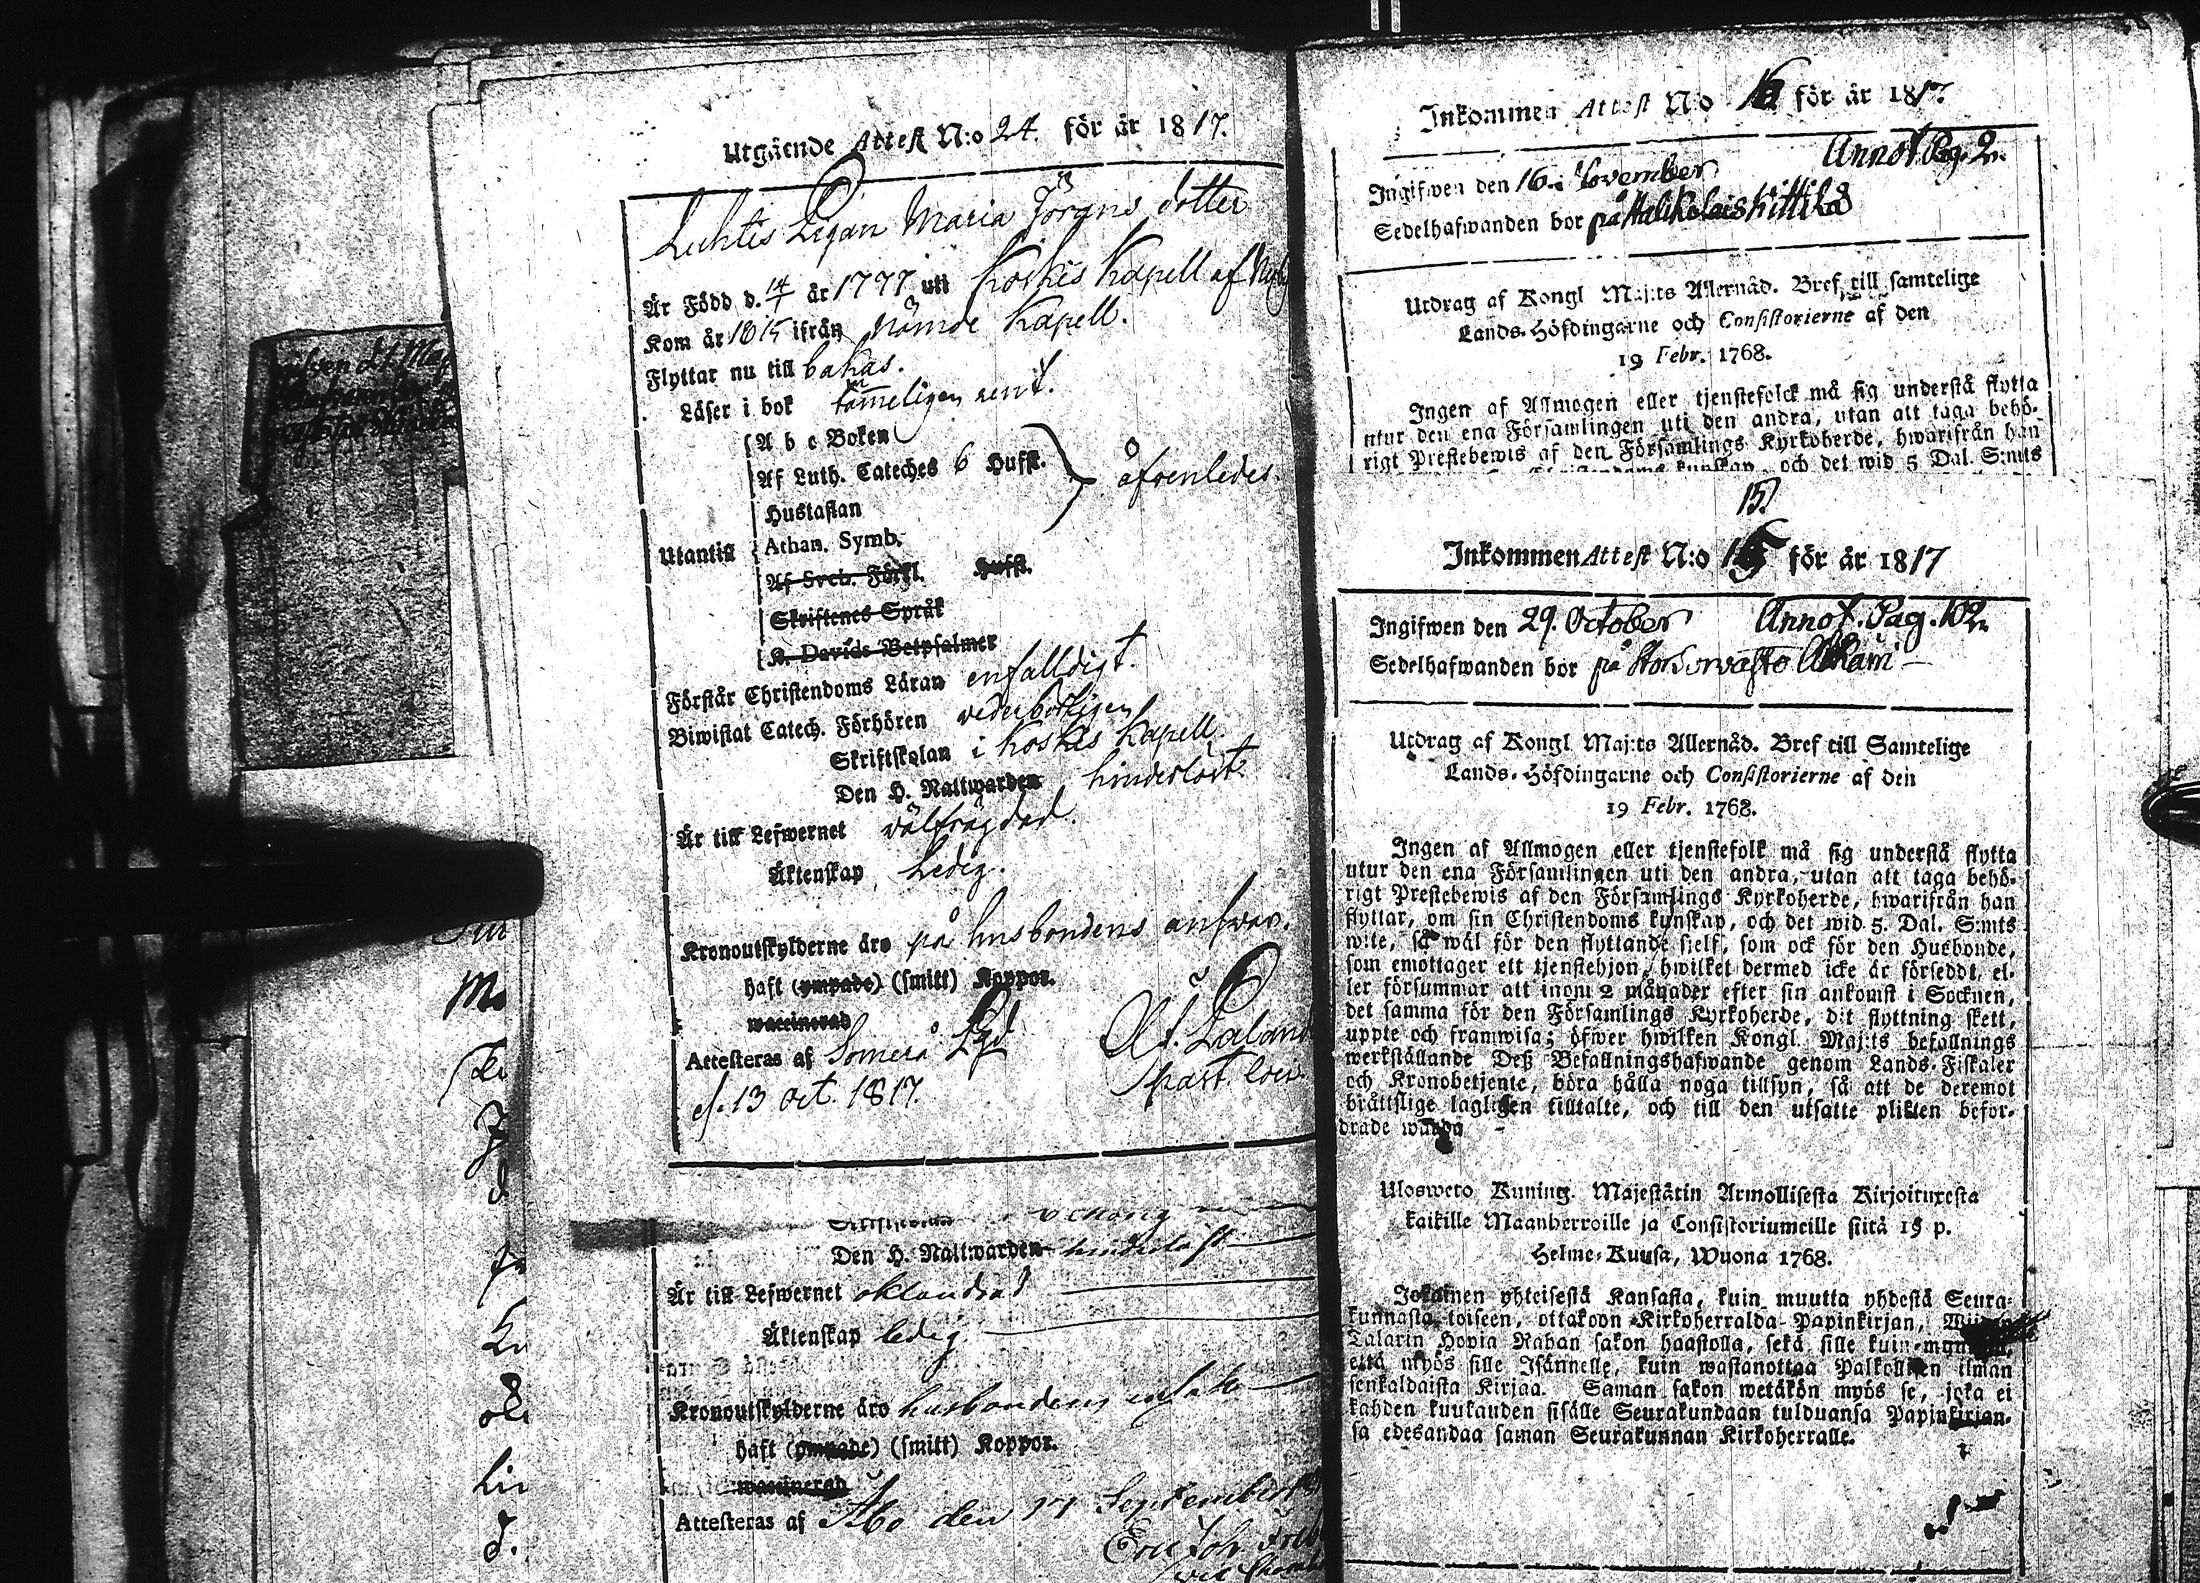 Utgående Attest N:o 24. för år 1817.
Lehtis Pigan Maria Jörans dotter
Är Född d. 14/1 år 1797 uti Koskis Kapell af
Kom år 1815 ifrån nämde Kapell.
Flyttar nu till bakas.
Läser i bok tämeligen rent.
A b c Boken
Af Luth. Cateches 6 Hufst. äfvenledes.
Hustaflan
Utantill
Athan. Symb.
Af Sveb. Förkl. Hufst.
Skriftenes Språk
K. Davids Botpsalmer
Förstår Christendoms Läran enfalldigt.
Biwistat Catech. Förhören vederbörligen
Skriftskolan i Koskis Kapell.
Den H. Nattwarden hinderlöst.
Är till Lefwernet välfrägdad.
Äktenskap Ledig.
Kronoutskylderne äro på husbondens answar.
haft (ympade) (smitt) Koppor.
waccinerad
Attesteras af Somero Pgd
d. 13 oct. 1817.
Paland
past.
Den H. Nattwarden hinderlöst
Är till Lefwernet oklandrad
Äktenskap ledig
Kronoutskylderne äro husbondens
haft (ympade) (smitt) Koppor.
waccinerad
Attesteras af Åbo den 17 September
Eric Joh.
Inkommen Attest N:o för år 1817.
Annot Pag. 2.
Ingifwen den 16 November
Sedelhafwanden bor på Halikolais Kittilä
Utdrag af Kongl Maj:ts Allernåd. Bref till samtelige
Lands-Höfdingarne och Consistorierne af den
19 Febr. 1768.
Ingen af Allmogen eller tjenstefolck må sig understå flytta
utur den ena Församlingen uti den andra, utan att taga behö-
rigt Prestebewis af den Församlings Kyrkoherde, hwarifrån han
kunskap, och det wid 5 Dal. S:mts
15.
Inkommen Attest N:o 15 för år 1817
Ingifwen den 29. October Annot. Pag. 102.
Sedelhafwanden bor på
Utdrag af Kongl Maj:ts Allernåd. Bref till Samtelige
Lands-Höfdingarne och Consistorierne af den
19 Febr. 1768.
Ingen af Allmogen eller tjenstefolk må sig understå flytta
utur den ena Församlingen uti den andra, utan att taga behö-
rigt Prestebewis af den Församlings Kyrkoherde, hwarifrån han
flyttar, om sin Christendoms kunskap, och det wid 5. Dal. S:mts
wite, så wäl för den flyttande sjelf, som ock för den Husbonde,
som emottager ett tjenstehjon, hwilket dermed icke är försedt, el-
ler försummar att inom 2 månader efter sin ankomst i Socknen,
det samma för den Församlings Kyrkoherde, dit flyttning skett,
uppte och framwisa; öfwer hwilken Kongl. Maj:ts befallnings
werkställande Deß Befallningshafwande genom Lands-Fiskaler
och Kronobetjente, böra hålla noga tillsyn, så att de deremot
bråttslige lagligen tilltalte, och till den utsatte plikten befor-
drade warda
Ulosweto Kuning. Majestätin Armollisesta Kirjoituxesta
kaikille Maanherroille ja Consistoriumeille siitä 19 p.
Helme-Kuusa, Wuona 1768.
Jokainen yhteisestä Kansasta, kuin muutta yhdestä Seura-
kunnasta toiseen, ottakoon Kirkoherralda Papinkirjan, Wiiden
Talarin Hopia Rahan sakon haastolla, sekä sille kuin
että myös sille Isännelle, kuin wastanottaa Palkollisen ilman
senkaldaista Kirjaa. Saman sakon wetäkön myös se, joka ei
kahden kuukauden sisälle Seurakundaan tulduansa Papinkirjan-
sa edesandaa saman Seurakunnan Kirkoherralle.